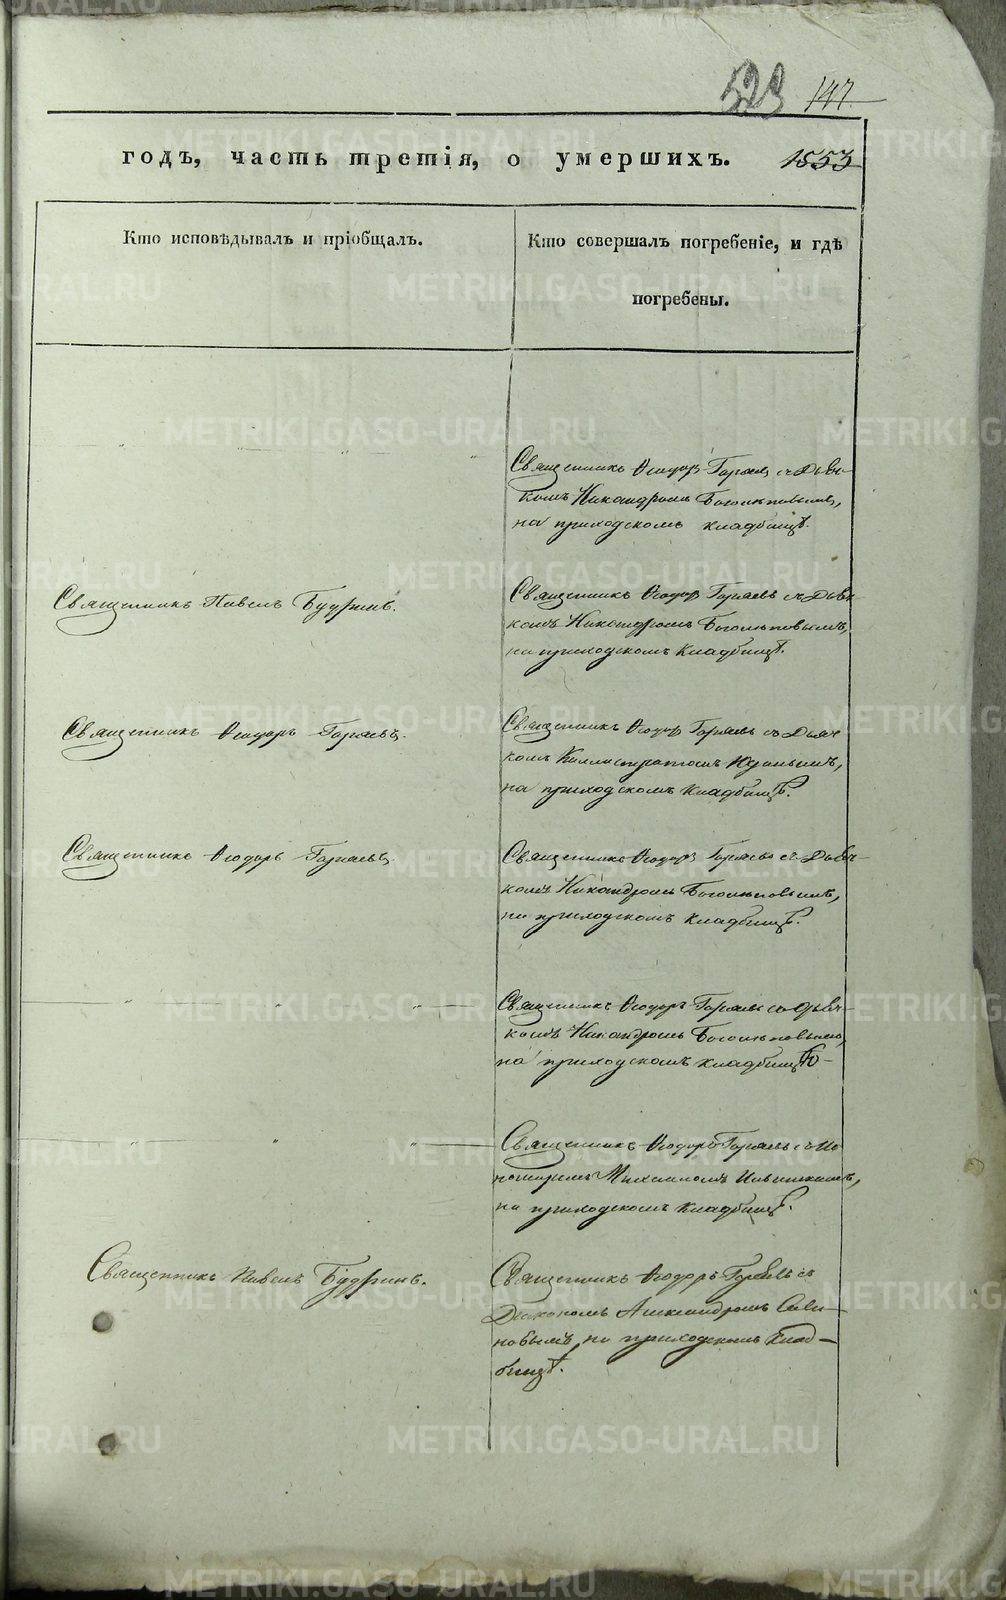 523 147
годъ, часть третія, о умершихъ. 1853
Кто исповѣдывалъ и пріобщалъ.
Кто совершалъ погребеніе, и гдѣ
погребены.
Священникъ Ѳеодоръ съ Дьяч-
комъ Никандромъ Боголѣповымъ,
на приходскомъ кладбищѣ.
Священникъ Павелъ Будринъ.
Священникъ Ѳеодоръ съ Дьяч-
комъ Никандромъ Боголѣповымъ,
на приходскомъ кладбищѣ.
Священникъ Ѳеодоръ
Священникъ Ѳеодоръ съ Дьяч-
комъ Каллистратомъ
на приходскомъ кладбищѣ.
Священникъ Ѳеодоръ
Священникъ Ѳеодоръ съ Дьяч-
комъ Никандромъ Боголѣповымъ,
на приходскомъ кладбищѣ.
Священникъ Ѳеодоръ съ Дьяч-
комъ Никандромъ Боголѣповымъ,
на приходскомъ кладбищѣ
Священникъ Ѳеодоръ съ По-
номаремъ Михаиломъ
на приходскомъ кладбищѣ.
Священникъ Павелъ Будринъ.
Священникъ Ѳеодоръ съ
Діакономъ Александромъ
на приходскомъ клад-
бищѣ.
METRIKI.GASO-URAL.RU